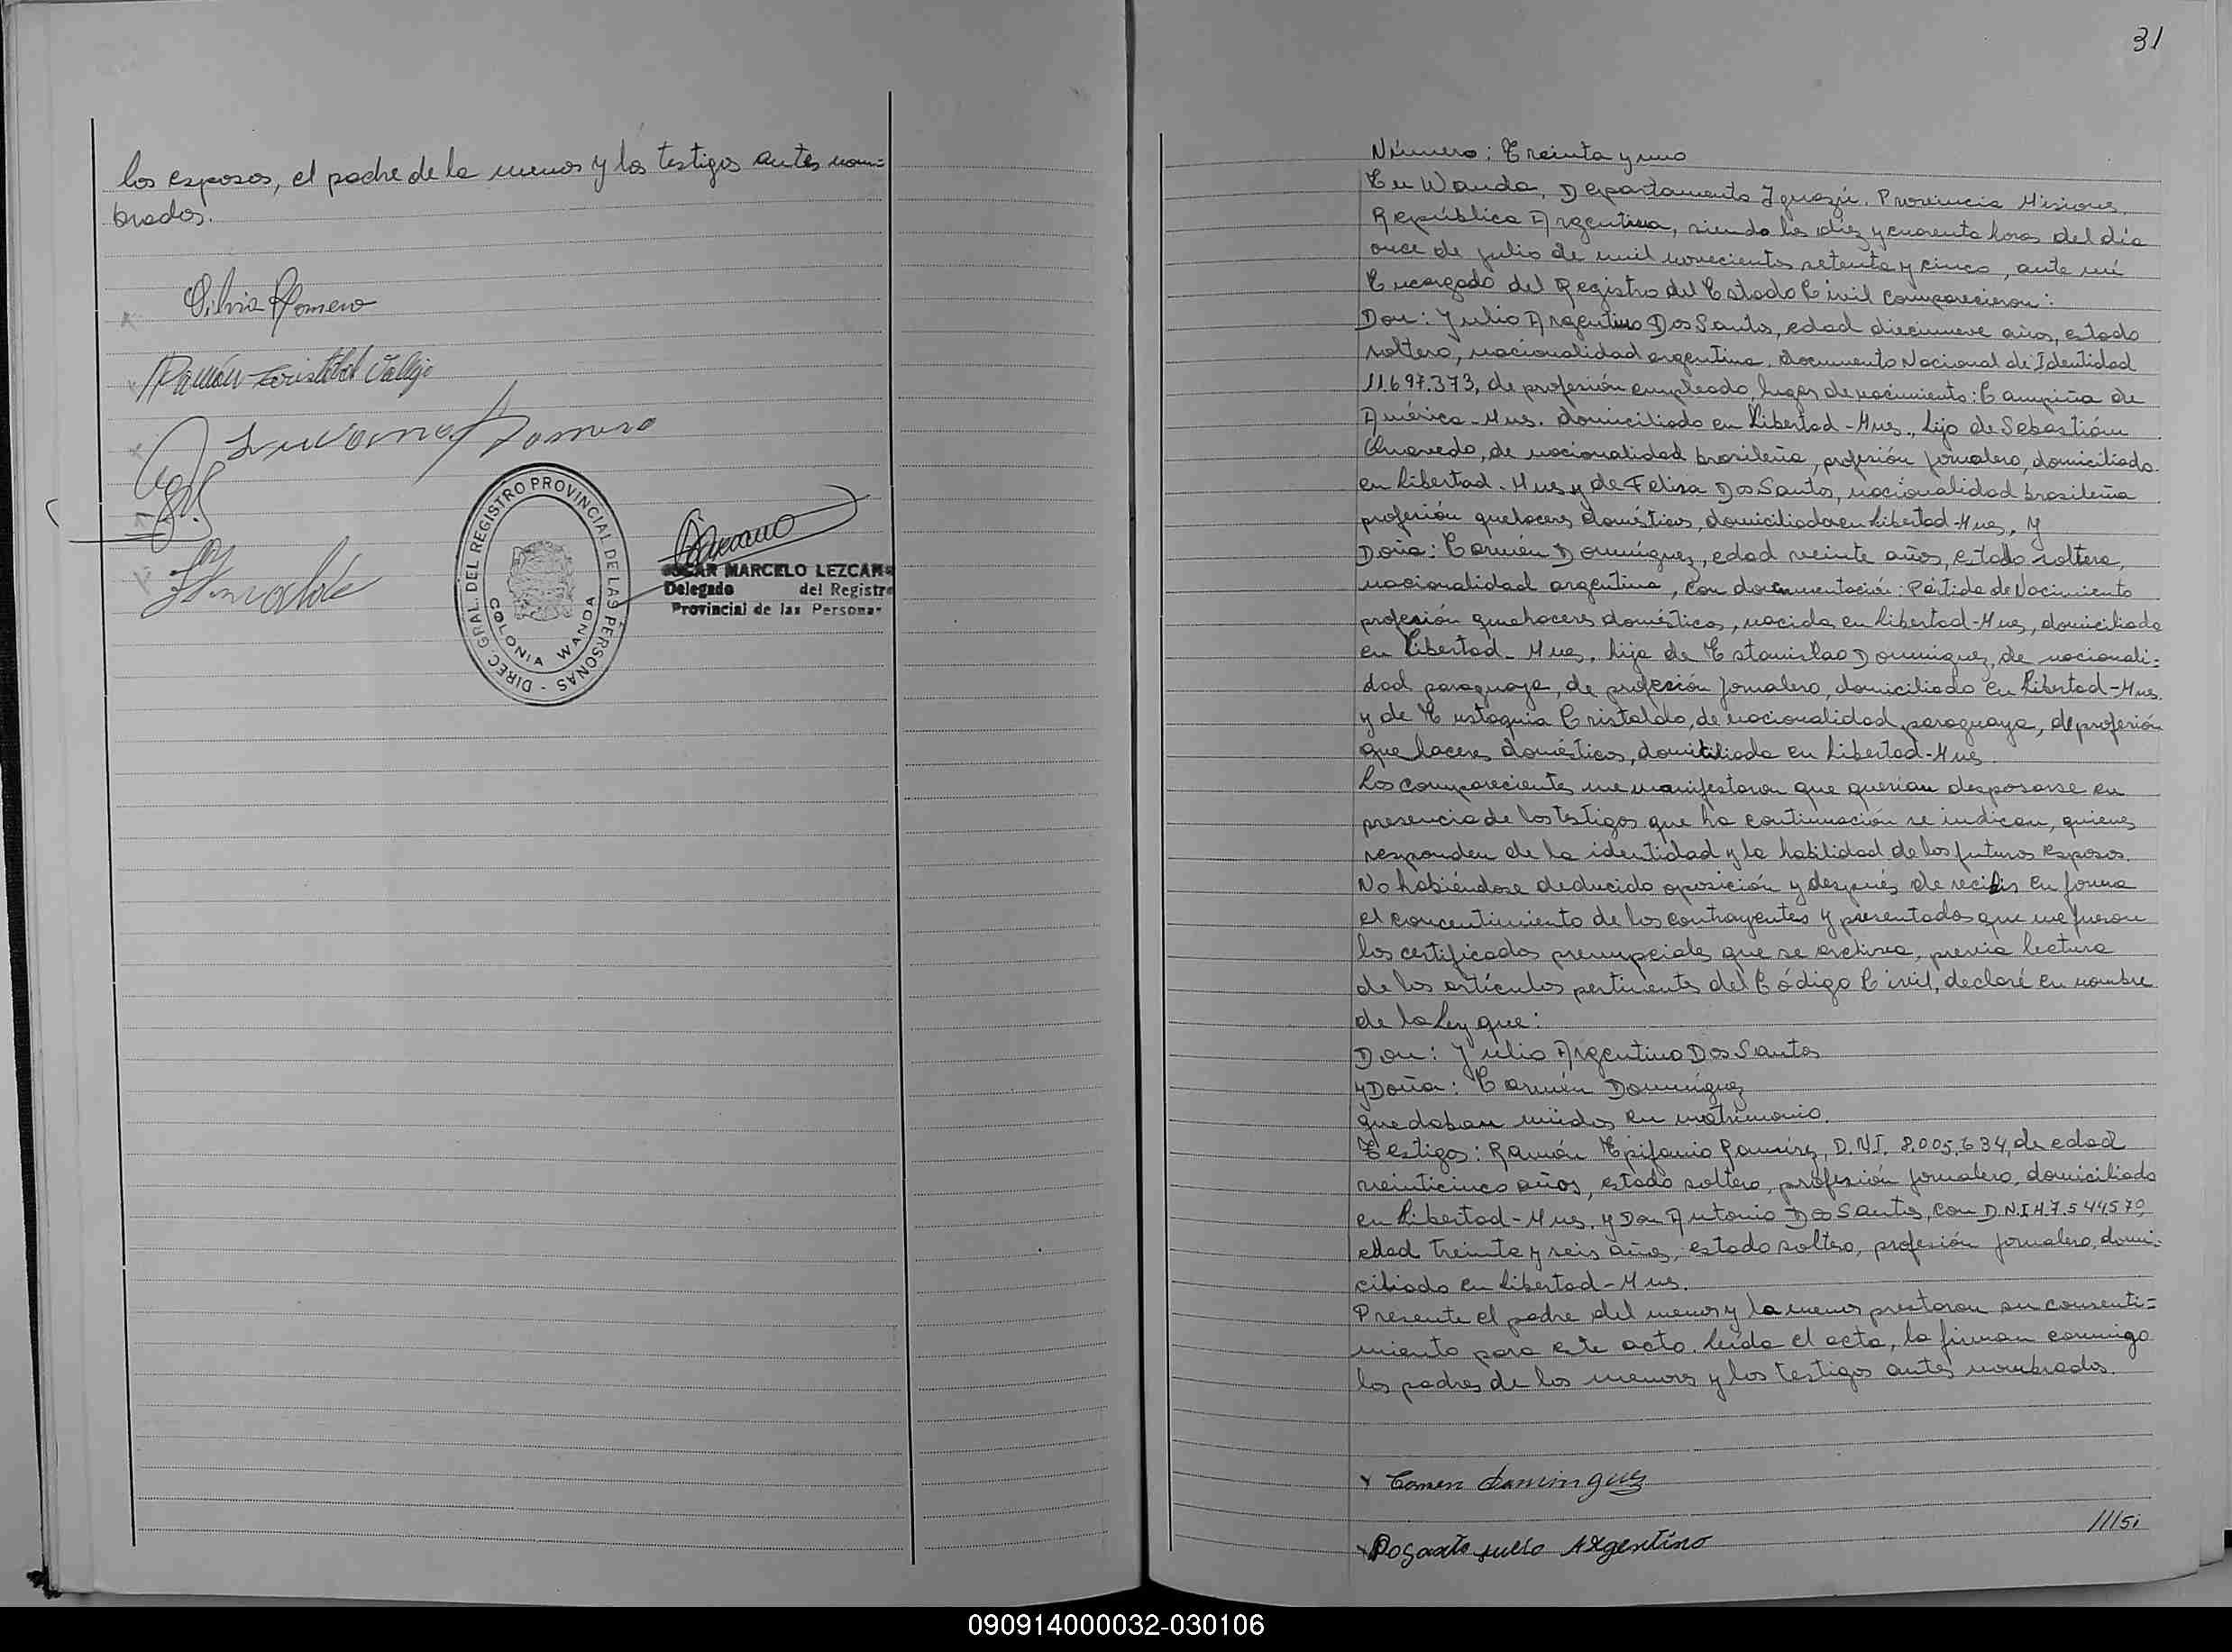 los esposos, el padre de la menor y los testigos antes nom=
brados.
Silvia Romero
Ramón Cristobal Vallejo
Romero
DIREC. GRAL. DEL REGISTRO PROVINCIAL DE LAS PERSONAS -
COLONIA WANDA
OSCAR MARCELO LEZCANO
Delegado del Registro
Provincial de las Personas
31
Número: Treinta y uno
En Wanda, Departamento Iguazú. Provincia Misiones.
República Argentina, siendo las diez y cuarenta horas del día
once de julio de mil novecientos setenta y cinco, ante mí
Encargado del Registro del Estado Civil comparecieron:
Don: Julio Argentino Dos Santos, edad diecinueve años, estado
soltero, nacionalidad argentina, documento Nacional de Identidad
11.697.373, de profesión empleado, lugar de nacimiento: Campiña de
América-Mnes. domiciliado en Libertad-Mnes., hijo de Sebastián
de nacionalidad brasileña, profesión jornalero, domiciliado
en Libertad-Mnes y de Felisa Dos Santos, nacionalidad brasileña
profesión quehaceres domésticos, domiciliada en Libertad-Mnes, y
Doña: Carmén Domínguez, edad veinte años, estado soltera,
nacionalidad argentina, con documentación: Pártida de Nacimiento
profesión quehaceres domésticos, nacida en Libertad-Mnes, domiciliada
en Libertad-Mnes, hija de Estanislao Domínguez, de nacionali=
dad paraguaya, de profesión jornalero, domiciliado en Libertad-Mnes.
y de Eustaquia Cristaldo, de nacionalidad paraguaya, de profesión
que haceres domésticos, domiciliada en Libertad-Mnes.
Los comparecientes me manifestaron que querían desposarse en
presencia de los testigos que ha continuación se indican, quienes
responden de la identidad y la habilidad de los futuros esposos.
No habiéndose deducido oposición y después de recibir en forma
el concentimiento de los contrayentes y presentados que me fueron
los certificados prenupciales que se archiva, previa lectura
de los artículos pertinentes del Código Civil, declaré en nombre
de la Ley que:
Don: Julio Argentino Dos Santos
y Doña: Carmén Domínguez
quedaban unidos en matrimonio.
Testigos: Ramón Epifanio Ramírez, D.N.I. 8.005.634, de edad
veinticinco años, estado soltero, profesión jornalero, domiciliado
en Libertad-Mnes. y Don Antonio Dos Santos, con D.N.I.
edad treinta y seis años, estado soltero, profesión jornalero, domi-
ciliado en Libertad-Mnes.
Presente el padre del menor y la menor prestaron su consenti=
miento para este acto. Leída el acta, la firman conmigo
los padres de los menores y los testigos antes nombrados.
x Carmen Dominguez
///si
x Dosanto Julio Argentino
090914000032-030106